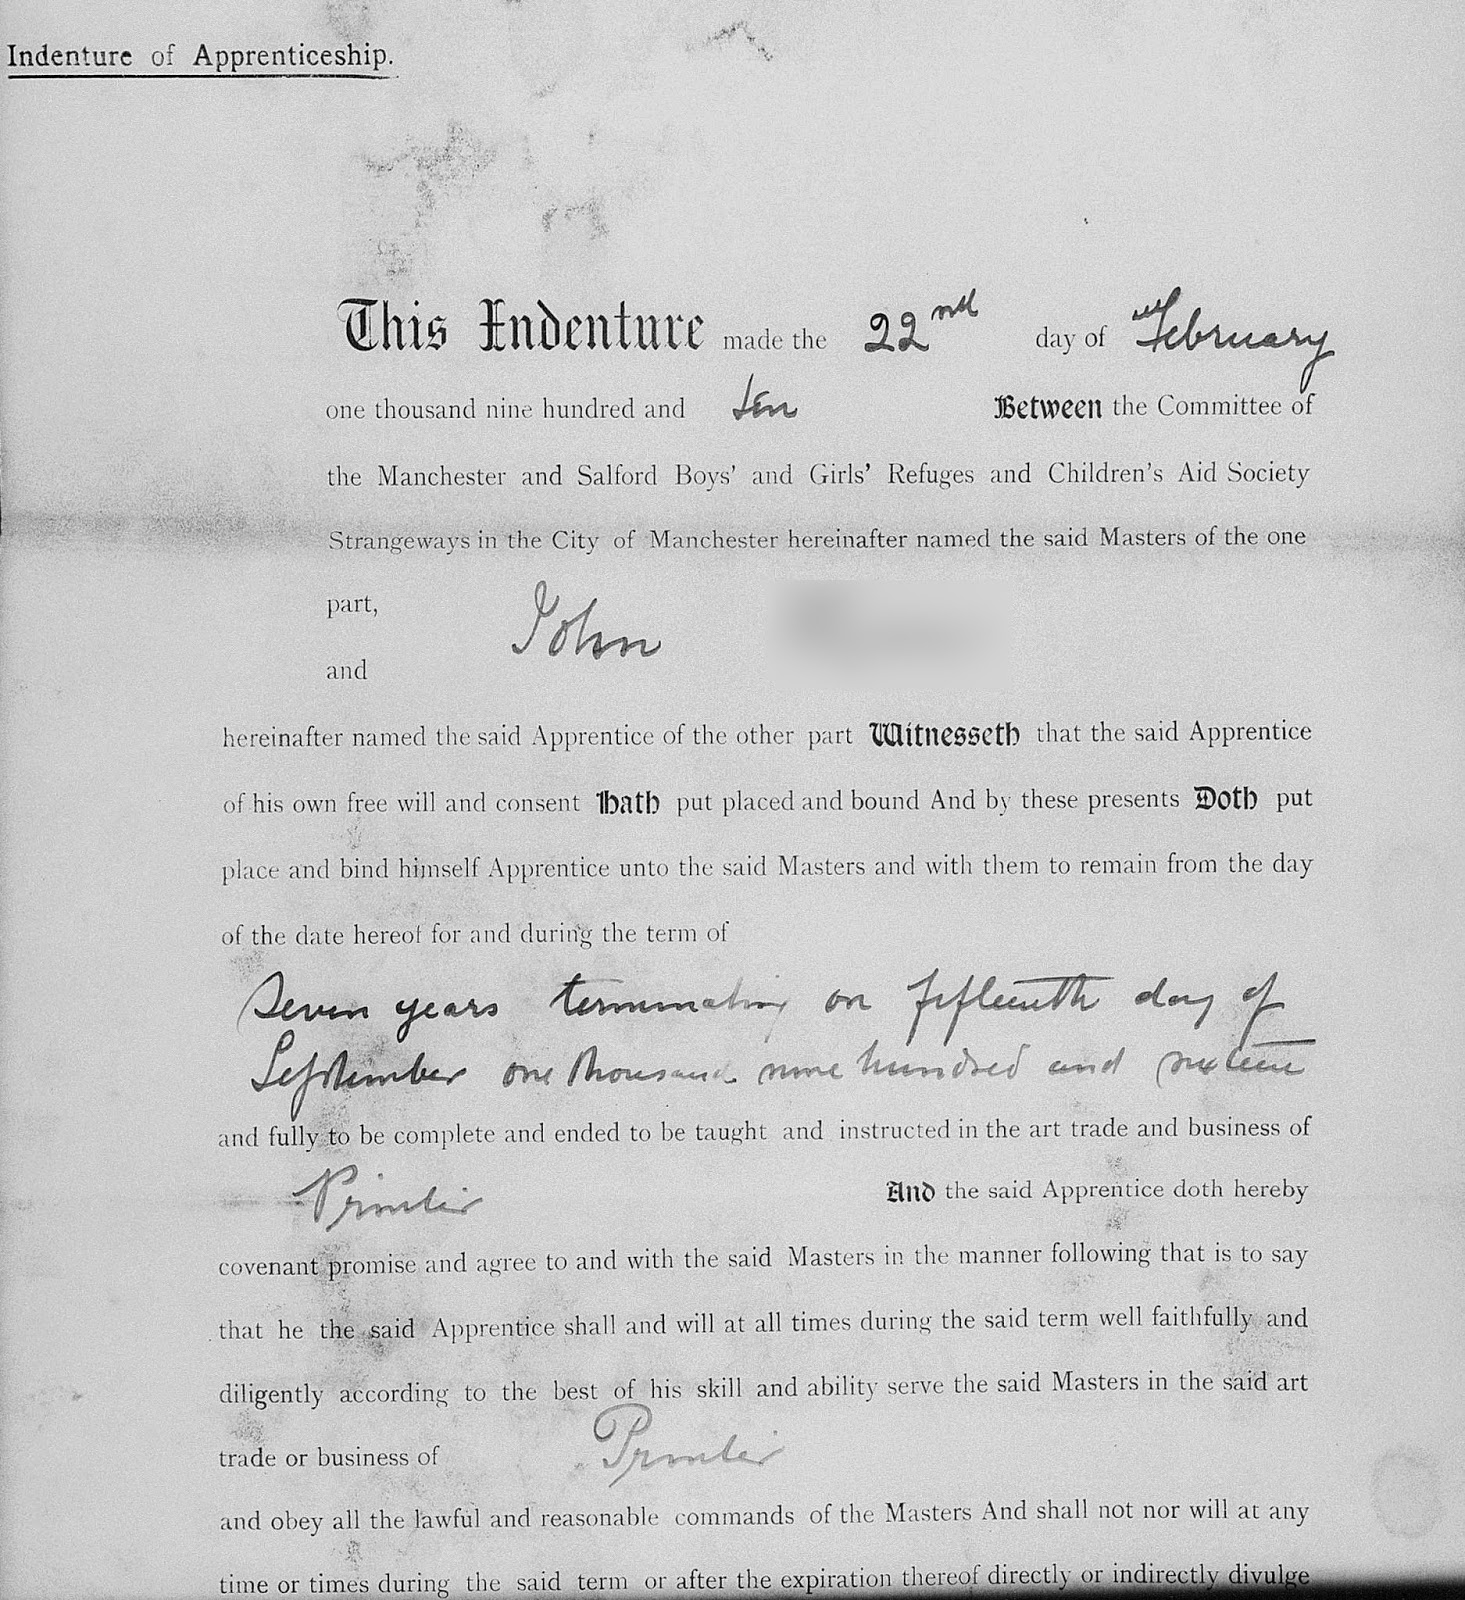 Indenture of Apprenticeship.
This Indenture made the 22nd day of February
one thousand nine hundred and ten Between the Committee of
the Manchester and Salford Boys' and Girls' Refuges and Children's Aid Society
Strangeways in the City of Manchester hereinafter named the said Masters of the one
part,
John
and
hereinafter named the said Apprentice of the other part Witnesseth that the said Apprentice
of his own free will and consent Hath put placed and bound And by these presents Doth put
place and bind himself Apprentice unto the said Masters and with them to remain from the day
of the date hereof for and during the term of
Seven years terminating on fifteenth day of
September one thousand nine hundred and sixteen
and fully to be complete and ended to be taught and instructed in the art trade and business of
Printer And the said Apprentice doth hereby
covenant promise and agree to and with the said Masters in the manner following that is to say
that he the said Apprentice shall and will at all times during the said term well faithfully and
diligently according to the best of his skill and ability serve the said Masters in the said art
trade or business of Printer
and obey all the lawful and reasonable commands of the Masters And shall not nor will at any
time or times during the said term or after the expiration thereof directly or indirectly divulge